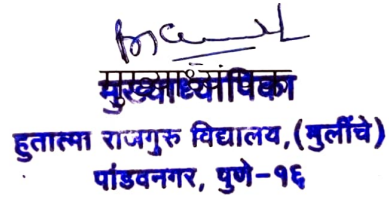 मुख्याध्यापिका
हुतात्मा राजगुरु विद्यालय,(मुलींचे)
पांडवनगर, पुणे-१६